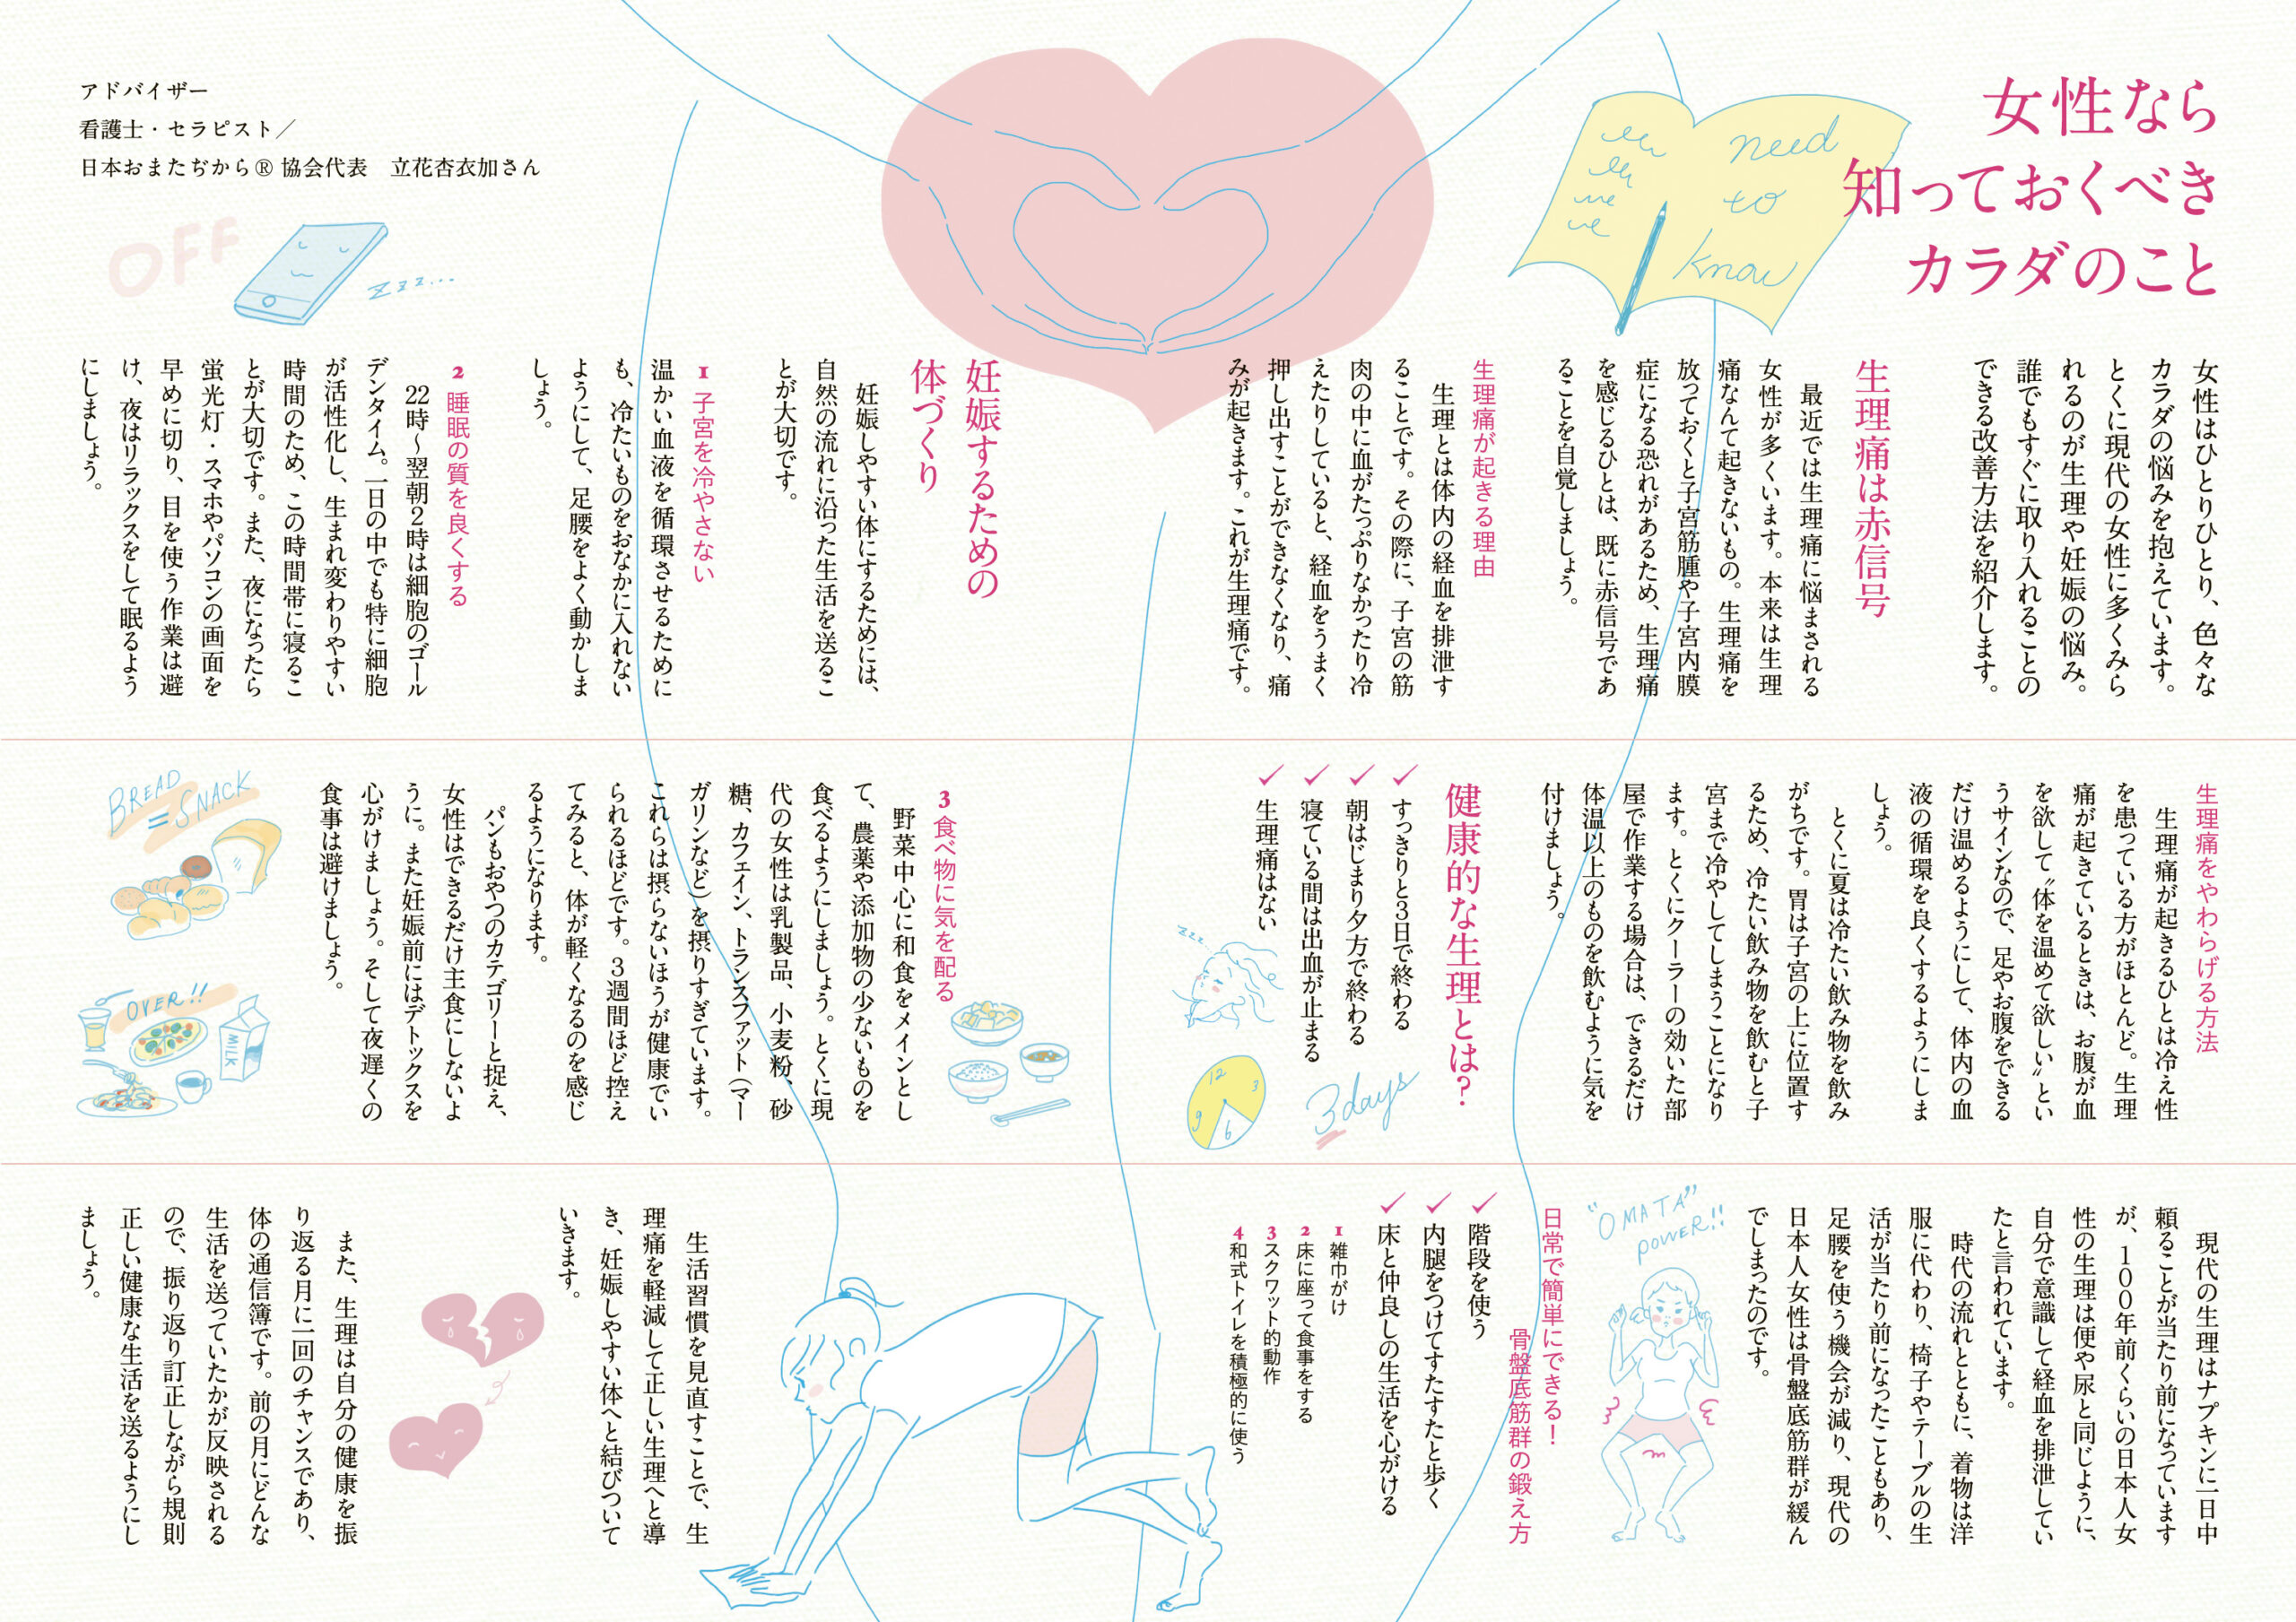 女性なら
知っておくべき
カラダのこと
need
to
know
女性はひとりひとり、色々な
カラダの悩みを抱えています。
とくに現代の女性に多くみら
れるのが生理や妊娠の悩み。
誰でもすぐに取り入れることの
できる改善方法を紹介します。
生理痛は赤信号
最近では生理痛に悩まされる
女性が多くいます。本来は生理
痛なんて起きないもの。生理痛を
放っておくと子宮筋腫や子宮内膜
症になる恐れがあるため、生理痛
を感じるひとは、既に赤信号であ
ることを自覚しましょう。
生理痛が起きる理由
生理とは体内の経血を排泄す
ることです。その際に、子宮の筋
肉の中に血がたっぷりなかったり冷
えたりしていると、経血をうまく
押し出すことができなくなり、痛
みが起きます。これが生理痛です。
生理痛をやわらげる方法
生理痛が起きるひとは冷え性
を患っている方がほとんど。生理
痛が起きているときは、お腹が血
を欲して〝体を温めて欲しい〟とい
うサインなので、足やお腹をできる
だけ温めるようにして、体内の血
液の循環を良くするようにしま
しょう。
とくに夏は冷たい飲み物を飲み
がちです。胃は子宮の上に位置す
るため、冷たい飲み物を飲むと子
宮まで冷やしてしまうことになり
ます。とくにクーラーの効いた部
屋で作業する場合は、できるだけ
体温以上のものを飲むように気を
付けましょう。
健康的な生理とは?
✓ すっきりと3日で終わる
✓ 朝はじまり夕方で終わる
✓ 寝ている間は出血が止まる
✓ 生理痛はない
zzz...
12
3
6
9
3days
現代の生理はナプキンに一日中
頼ることが当たり前になっています
が、100年前くらいの日本人女
性の生理は便や尿と同じように、
自分で意識して経血を排泄してい
たと言われています。
時代の流れとともに、着物は洋
服に代わり、椅子やテーブルの生
活が当たり前になったこともあり、
足腰を使う機会が減り、現代の
日本人女性は骨盤底筋群が緩ん
でしまったのです。
"OMATA"
POWER!!
日常で簡単にできる!
骨盤底筋群の鍛え方
✓ 階段を使う
✓ 内腿をつけてすたすたと歩く
✓ 床と仲良しの生活を心がける
1 雑巾がけ
2 床に座って食事をする
3 スクワット的動作
4 和式トイレを積極的に使う
アドバイザー
看護士・セラピスト／
日本おまたぢから®協会代表 立花杏衣加さん
OFF
zzz...
妊娠するための
体づくり
妊娠しやすい体にするためには、
自然の流れに沿った生活を送るこ
とが大切です。
1 子宮を冷やさない
温かい血液を循環させるために
も、冷たいものをおなかに入れない
ようにして、足腰をよく動かしま
しょう。
2 睡眠の質を良くする
22時～翌朝2時は細胞のゴール
デンタイム。一日の中でも特に細胞
が活性化し、生まれ変わりやすい
時間のため、この時間帯に寝るこ
とが大切です。また、夜になったら
蛍光灯・スマホやパソコンの画面を
早めに切り、目を使う作業は避
け、夜はリラックスをして眠るよう
にしましょう。
3 食べ物に気を配る
野菜中心に和食をメインとし
て、農薬や添加物の少ないものを
食べるようにしましょう。とくに現
代の女性は乳製品、小麦粉、砂
糖、カフェイン、トランスファット（マー
ガリンなど）を摂りすぎています。
これらは摂らないほうが健康でい
られるほどです。3週間ほど控え
てみると、体が軽くなるのを感じ
るようになります。
パンもおやつのカテゴリーと捉え、
女性はできるだけ主食にしないよ
うに。また妊娠前にはデトックスを
心がけましょう。そして夜遅くの
食事は避けましょう。
BREAD
=SNACK
OVER!!
MILK
生活習慣を見直すことで、生
理痛を軽減して正しい生理へと導
き、妊娠しやすい体へと結びついて
いきます。
また、生理は自分の健康を振
り返る月に一回のチャンスであり、
体の通信簿です。前の月にどんな
生活を送っていたかが反映される
ので、振り返り訂正しながら規則
正しい健康な生活を送るようにし
ましょう。